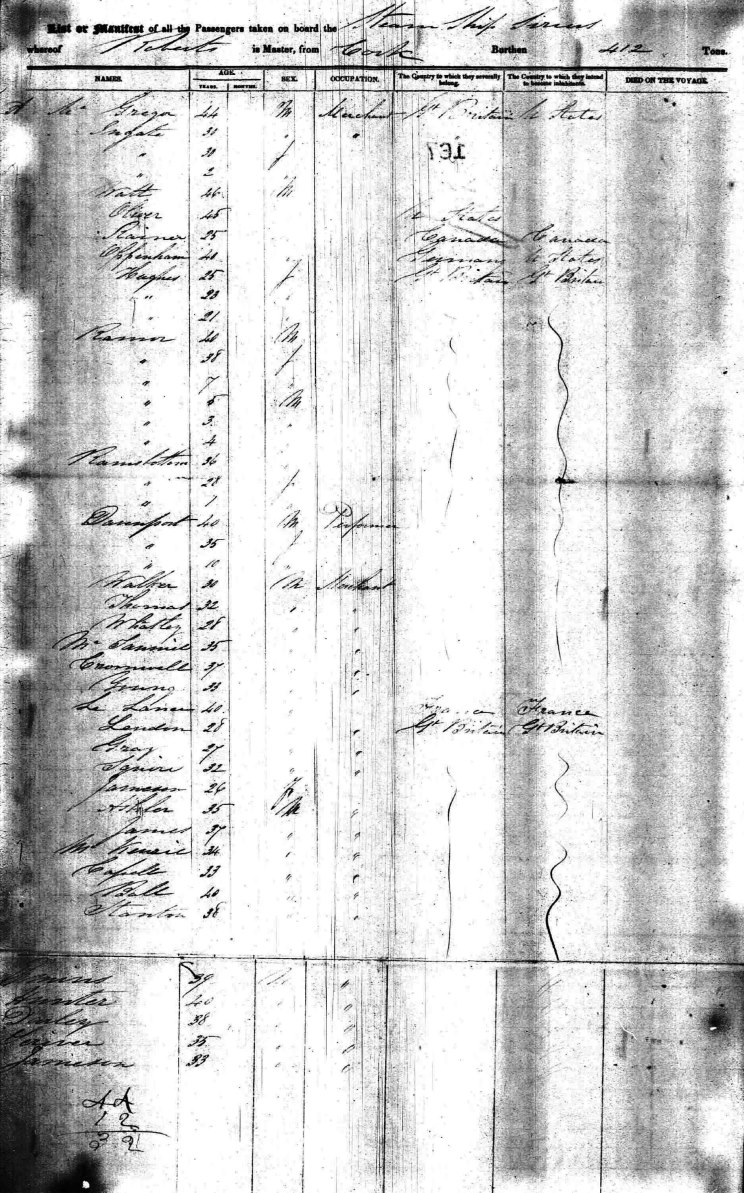 List or Manifest of all the Passengers taken on board the Steam Ship Sirius
whereof Roberts is Master, from Cork Burthen 412 Tons.
NAMES. AGE. YEARS. MONTHS. SEX. OCCUPATION. The Country to which they severally belong. The Country to which they intend to become inhabitants. DIED ON THE VOYAGE.
Mc Gregor 44 M Merchant Gt Britain U States
30 "
" 30 f
167
" 2 "
Watt 46 M
Oliver 45 U States
25 Canada Canada
Oppenham 40 Germany U States
Hughes 25 f Gt Britain Gt Britain
" 23 "
" 21 "
40 M
" 38 f
" 7 "
" 5 M
" 3 "
" 4 "
Ramsbottom 36 "
" 28 f
" 7 "
Davenport 40 M Performer
" 35 f
" 10 "
Walker 30 M Merchant
Thomas 32 " "
Whatley 28 " "
35 " "
Cromwell 37 " "
Young 33 " "
40 " France France
Landon 28 " " Gt Britain Gt Britain
Gray 27 " "
Squire 32 " "
Jameson 26 f
35 M "
James 37 " "
Mc Kenzie 34 " "
Capelt 33 " "
Ball 40 " "
Stanton 38 " "
39 M "
Hunter 40 " "
38 " "
35 " "
Jameson 33 " "
44
12
32